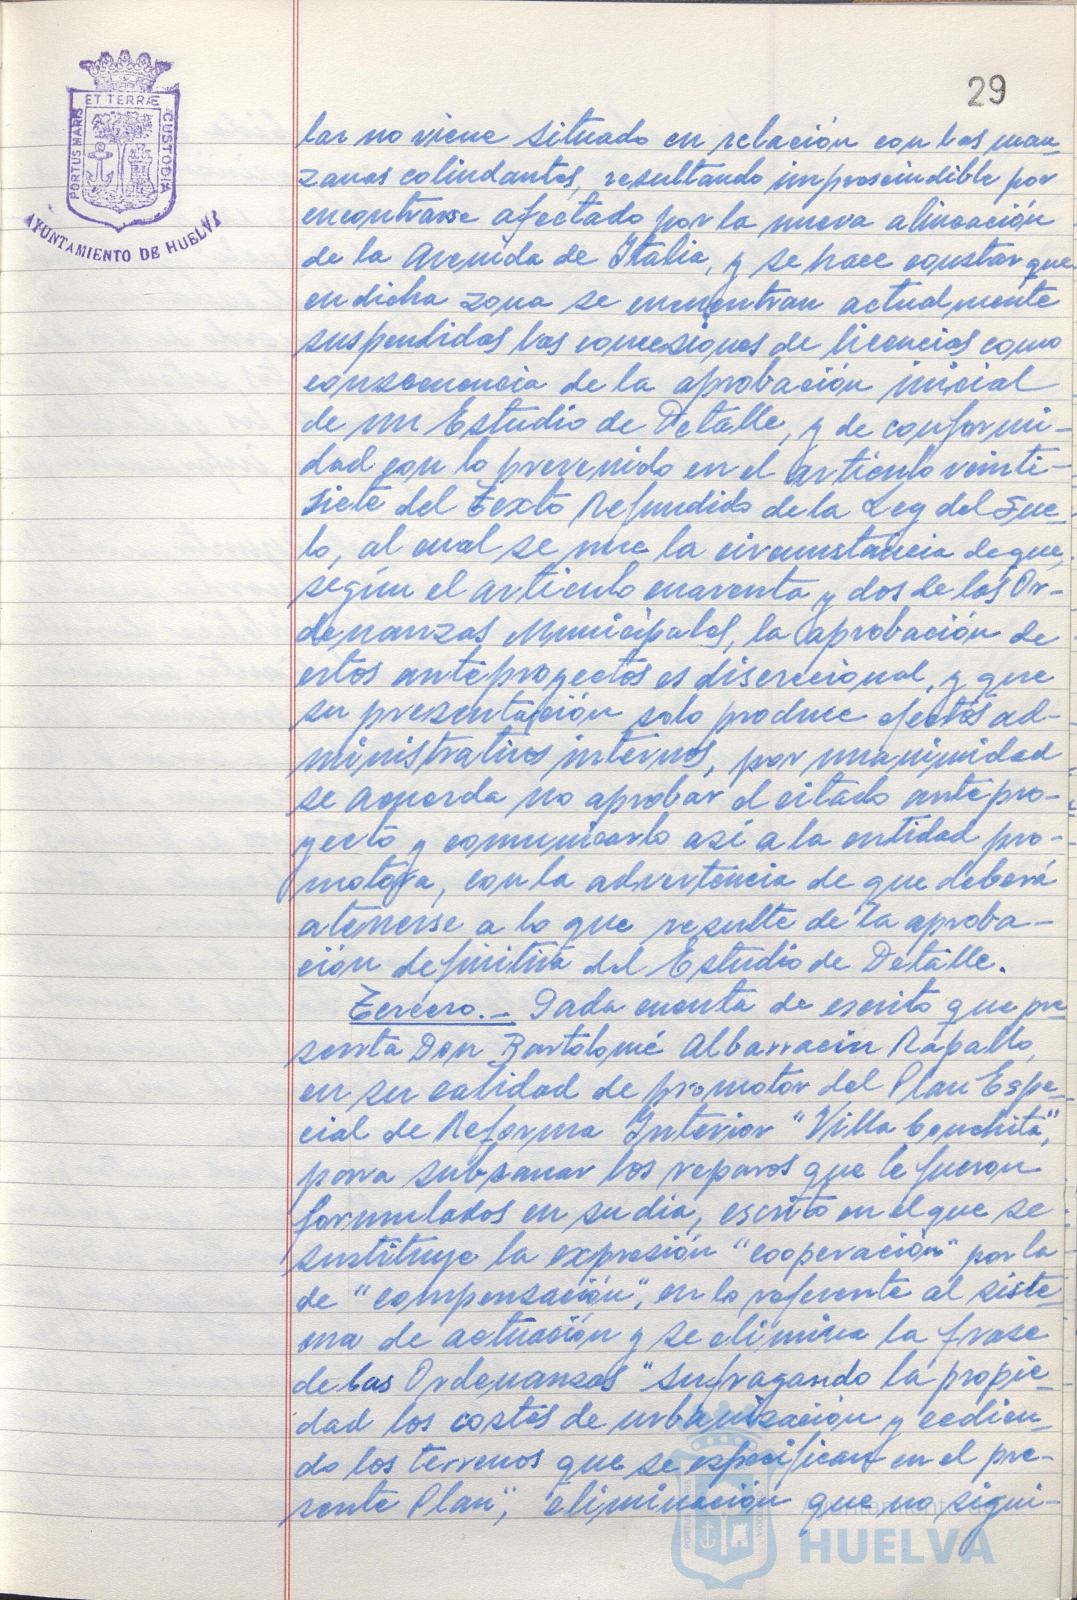 29
PORTUS MARIS ET TERRÆ CUSTODIA
AYUNTAMIENTO DE HUELVA
lar no viene situado en relación con las man-
zanas colindantes, resultando imprescindible por
encontrarse afectado por la nueva alineación
de la Avenida de Italia, y se hace constar que
en dicha zona se encuentran actualmente
suspendidas las concesiones de licencias como
consecuencia de la aprobación inicial
de un Estudio de Detalle, y de conformi-
dad con lo prevenido en el artículo veinti-
siete del Texto Refundido de la Ley del Sue-
lo, al cual se une la circunstancia de que,
según el artículo cuarenta y dos de las Or-
denanzas Municipales, la aprobación de
estos anteproyectos es discrecional, y que
su presentación solo produce efectos ad-
ministrativos internos, por unanimidad
se acuerda no aprobar el citado antepro-
yecto y comunicarlo así a la entidad pro-
motora, con la advertencia de que deberá
atenerse a lo que resulte de la aproba-
ción definitiva del Estudio de Detalle.
Tercero.- Dada cuenta de escrito que pre-
senta Don Bartolomé Albarracin Rapallo,
en su calidad de promotor del Plan Espe-
cial de Reforma Interior "Villa Conchita",
para subsanar los reparos que le fueron
formulados en su dia, escrito en el que se
sustituye la expresión "cooperación" por la
de "compensación", en lo referente al siste-
ma de actuación y se elimina la frase
de las Ordenanzas "sufragando la propie-
dad los costes de urbanización y cedien-
do los terrenos que se especifican en el pre-
sente Plan", eliminación que no signi-
Ayuntamiento de
HUELVA